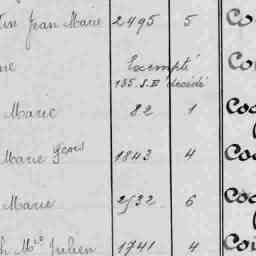 tin Jean Marie 2495 5 Co
ne Exempté Co
135. S.E décédé
Marie 82 1 Coc
Marie Gcois 1843 4 Coc
Marie 2532 6 Coc
h Mie Julien 1741 4 Coi